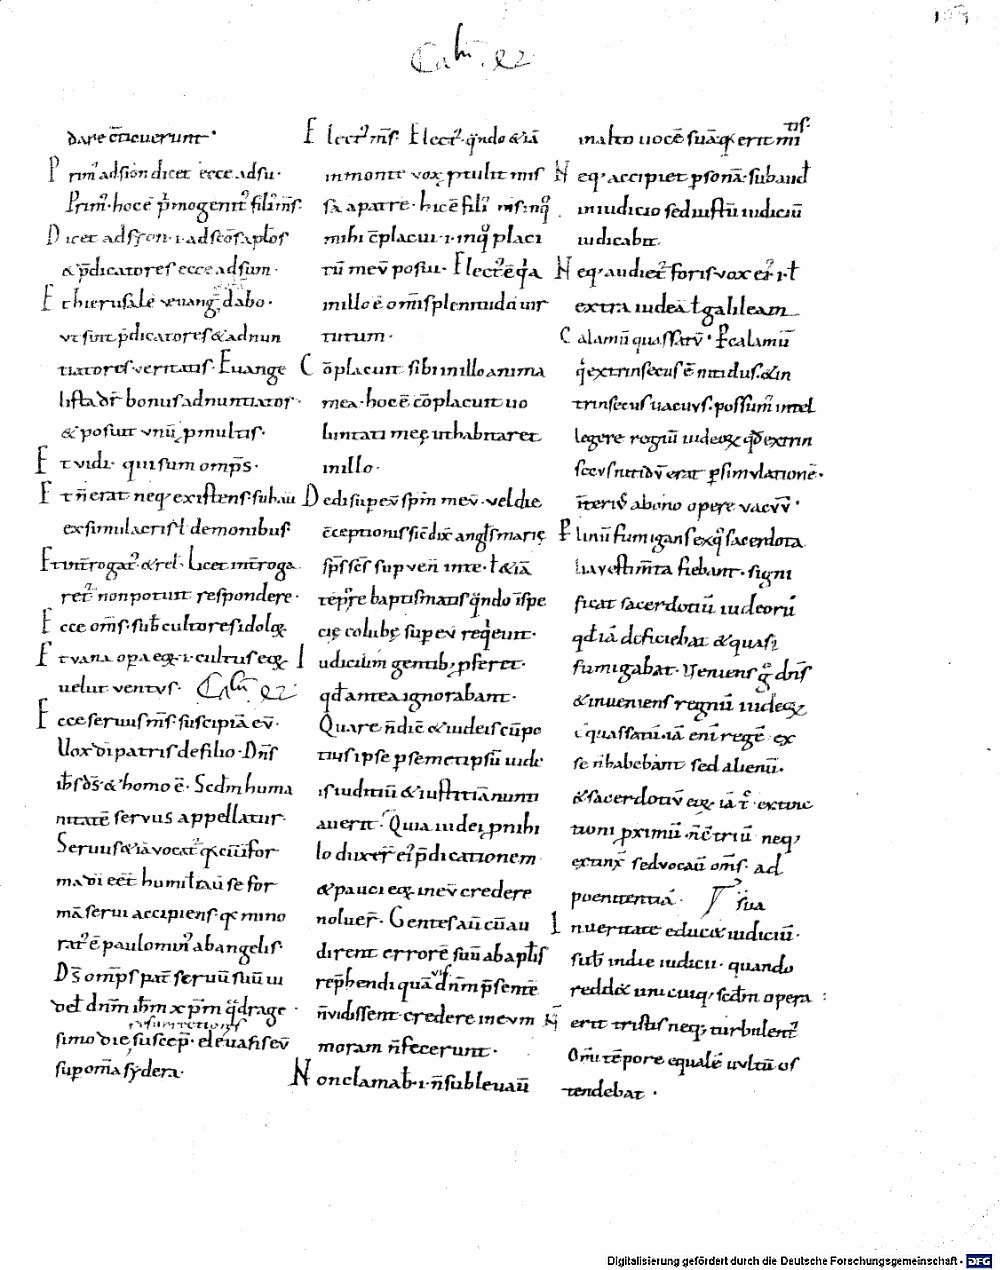 dare c̅ticuerunt·
P rim᷒ adsion dicet ecce adsu·
Prim᷒· hoc ē p̄mogenit᷒ fili᷒ m̅s·
D icet ad syon ·i· ad sc̅os ap̅los
& p̄dicatores ecce adsum·
E t hierusalē euang̅ dabo·
ut sint p̄dicatores & adnun
tiatores veritatis· Euange
lista dr̄ bonus adnuntiator·
& posuit unū p multis·
E t vidi· qui sum omp̅s·
E t n̄ erat neq; existens· sub
ex simulacris ł demonibus·
E t int̅rogat᷒ & rel· Licet int̅roga
ret᷒ non potuit respondere·
E cce om̅s· sub cultores idoloꝝ
E t vana opa eoꝝ ·i· cultus eoꝝ
uelut ventus·
E cce seruus m̅s· suscipiā eū·
Uox di patris de filio· Dn̅s
ih̅s ds̅ & homo ē· Scdm huma
nitatē servus appellatur·
Seruus & iā vocat᷒
ma di
mā serui accipiens· minо
rat᷒ ē paulomin᷒ ab angelis·
Ds̅ omp̅s pat̅ seruū suū ui
del dn̅m ih̅m xp̅m q̄drage
resurrectionis
simo die suscep· eleuans eū
sup om̅a sydera·
E lect᷒ m̅s· Elect᷒· q̄ndo & iā
in monte vox ptulit
sa a patre· hic ē fili᷒ m̅s· inq᷒
mihi c̅placui ·i· inq᷒ placi
tū meū posui· Elect᷒ ē q̇a
in illo ē om̅is plenitudo uir
tutum·
C o̅placuit sibi in illo anima
mea· hoc ē co̅placuit uo
luntati meę ut habitaret
in illo·
D edi super eū spm̅ meū· vel die
c̅ceptionis sic̅ dix̅ angls̅ marię
sp̅s sc̅s sup ven̅ in te· ł & iā
tepr̅e baptismatis q̄ndo in spe
cię colubę sup eū req̇euit·
I udiciūm gentib; pferet·
qd̅ antea ignorabant·
Quare n̄ dic̅ & iudeis cū po
tius ipse p semetipsū uide
is iuditiū & iustitiā nunti
auerit· Quia iudei p nihi
lo duxer̅ ei᷒ p̄dicationem
& pauci eoꝝ in eū credere
noluer̅· Gentes aū cū au
dirent errorē suū ab apłis
rep̄hendi quā vis dn̅m p̄sentē
n̄ vidissent· credere in eum
moram n̄ fecerunt·
N on clamab ·i· n̄ subleuaū
tis·
in alto uocē suā· q̇ erit mi
N eq; accipiet psonā· subaud
in iudicio sed iustū iudiciū
iudicabit·
N eq; audiet᷒ foris vox ei᷒ ·i· ł
extra iudeā ł galileam
C alamū quassatū· P calamū
q̇ extrinsecus ē nitidus & in
trinsecus uacuus· possum᷒ intel
legere regnū iudeoꝝ qd̅ extrin
secus nitidū erat p simulationē·
int̅eri᷒ a bono opere vacuū·
E linū fumigans ex q᷒ sacerdota
lia vestim̅ta fiebant· signi
ficat sacerdotiū iudeorū
qd̅ iā deficiebat & quasi
fumigabat· Veniens g̊ dn̅s
& inueniens regnū iudeoꝝ
c̅quassatū· iā eni̅ regē ex
se n̄ habebant sed alienū·
& sacerdotiū eoꝝ iā
tioni proximū· n̄ c̅triū neq;
extinx̅ sed vocaū om̅s ad
poenitentiā·
sua
I n ueritate educ& iudiciū·
sub in die iudicii· quando
redd& unicuiq; scdm opera
N̄ erit tristis neq; turbulent᷒
Om̅i te̅pore equalē uultū os
tendebat·
Digitalisierung gefördert durch die Deutsche Forschungsgemeinschaft · DFG